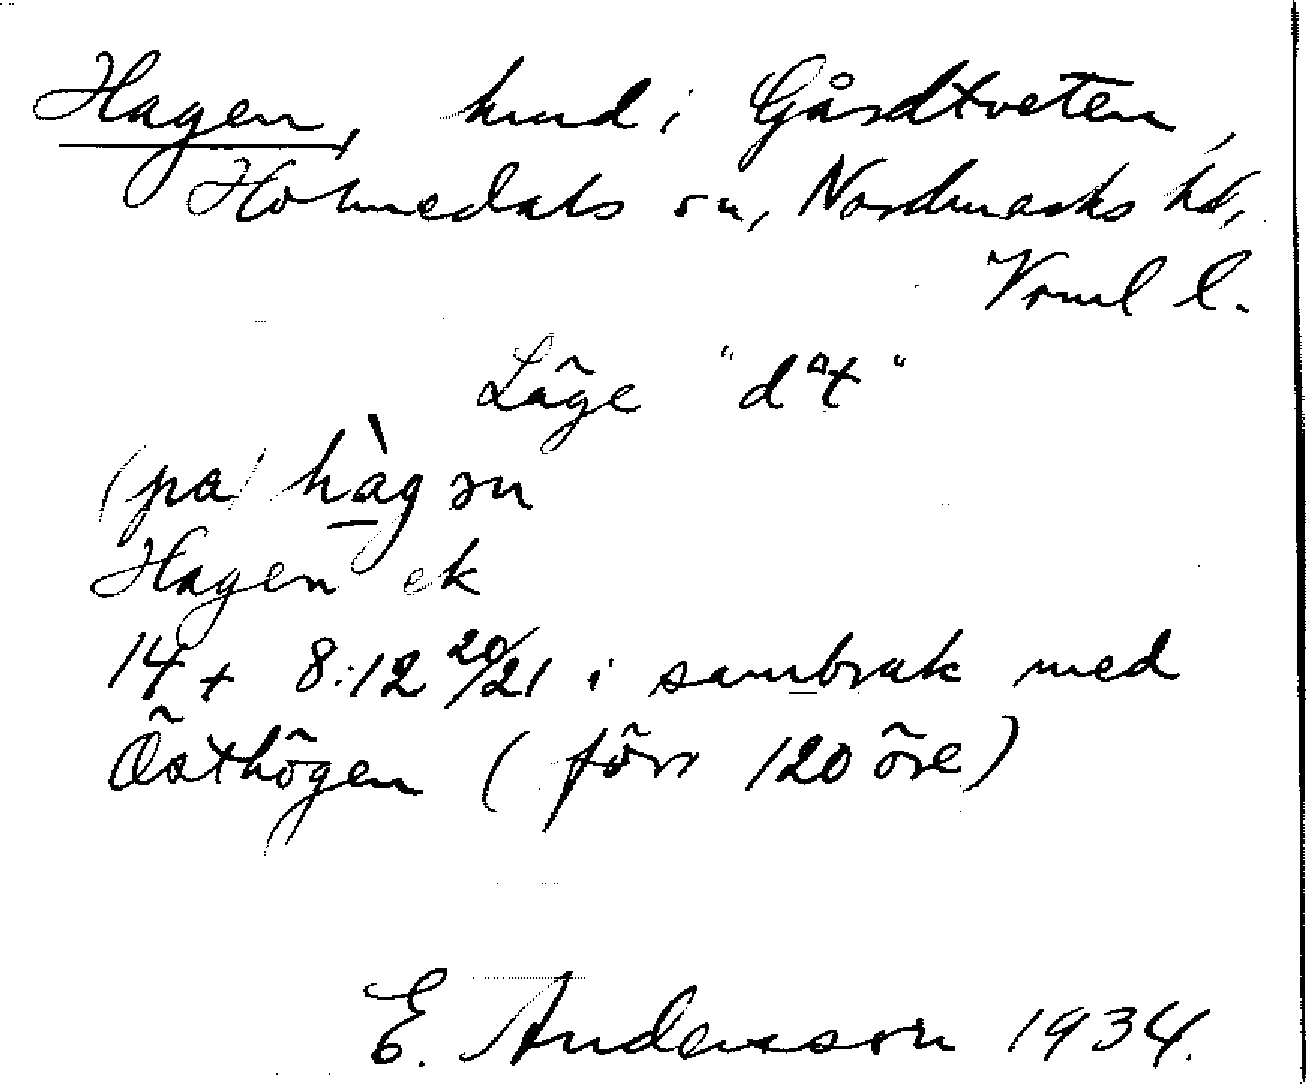 Hagen, hmd i Gårdtveten,
Holmedals sn, Nordmarks hd,
Vrml l.
Läge "d4t"
(på) hàg ən
Hagen ek
14+ 8:12 20/21 i sambruk med
Östhögen (förr 120 öre)
E. Andersson 1934.